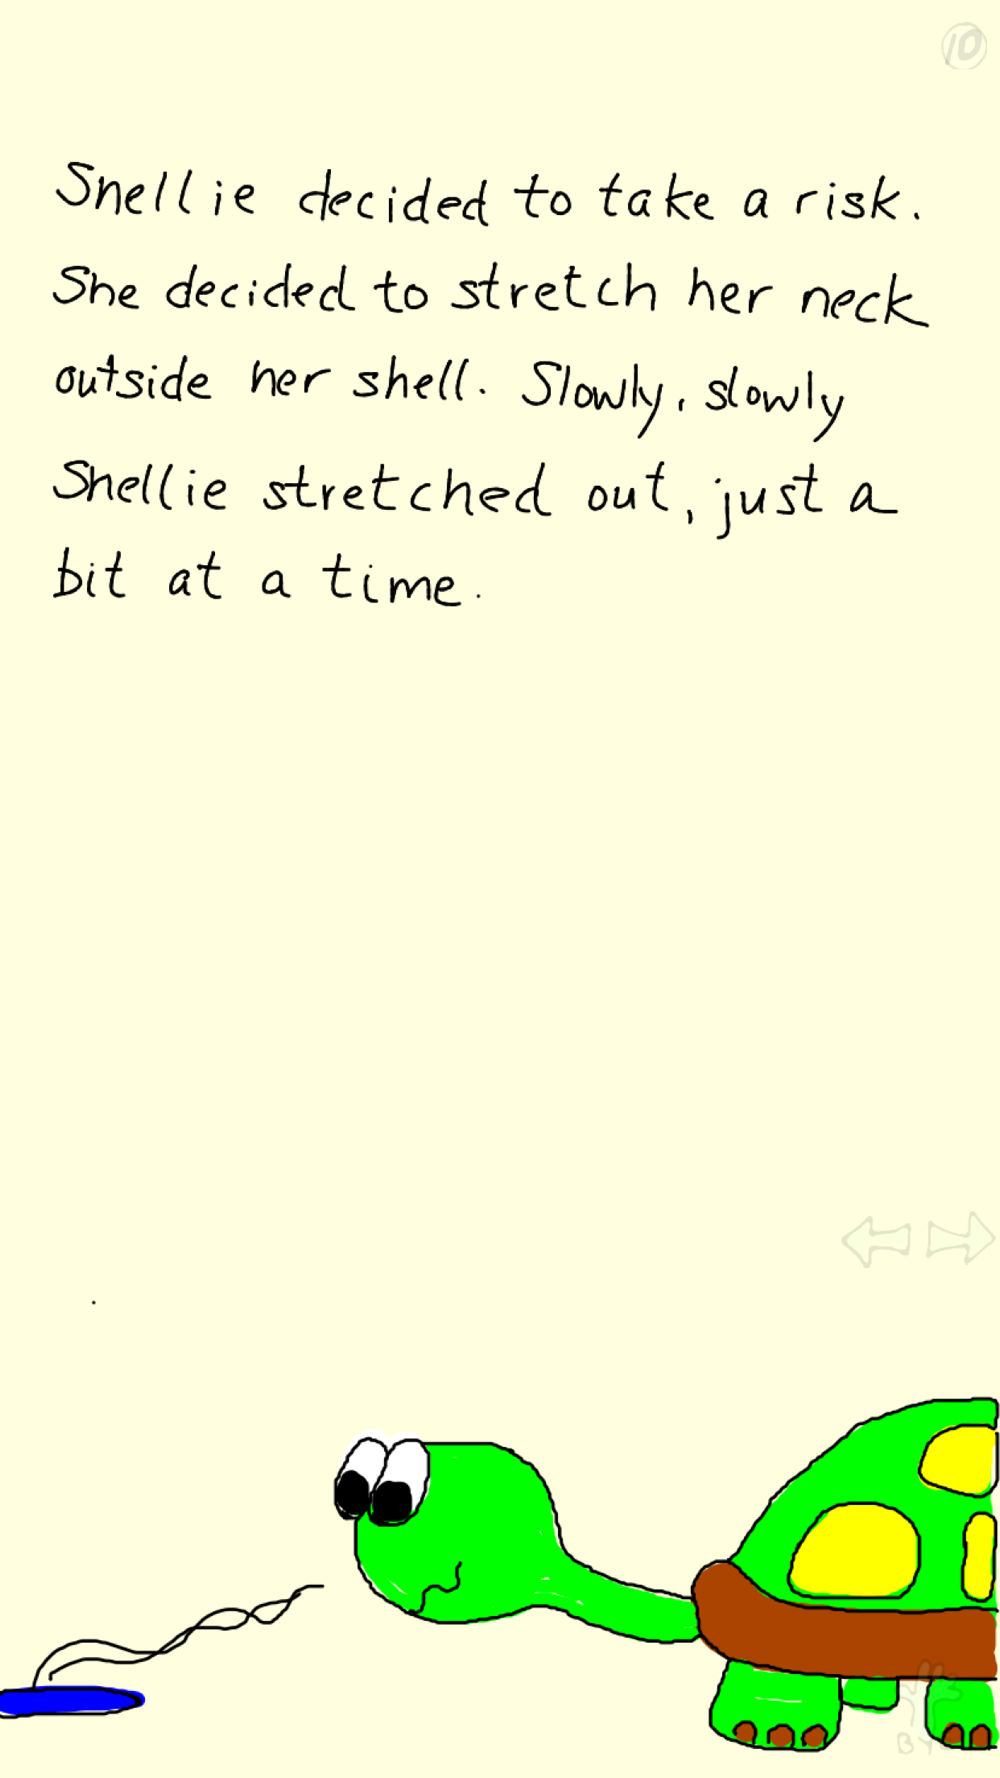 10
Shellie decided to take a risk.
She decided to stretch her neck
outside her shell. Slowly, slowly
Shellie stretched out, just a
bit at a time.
BY